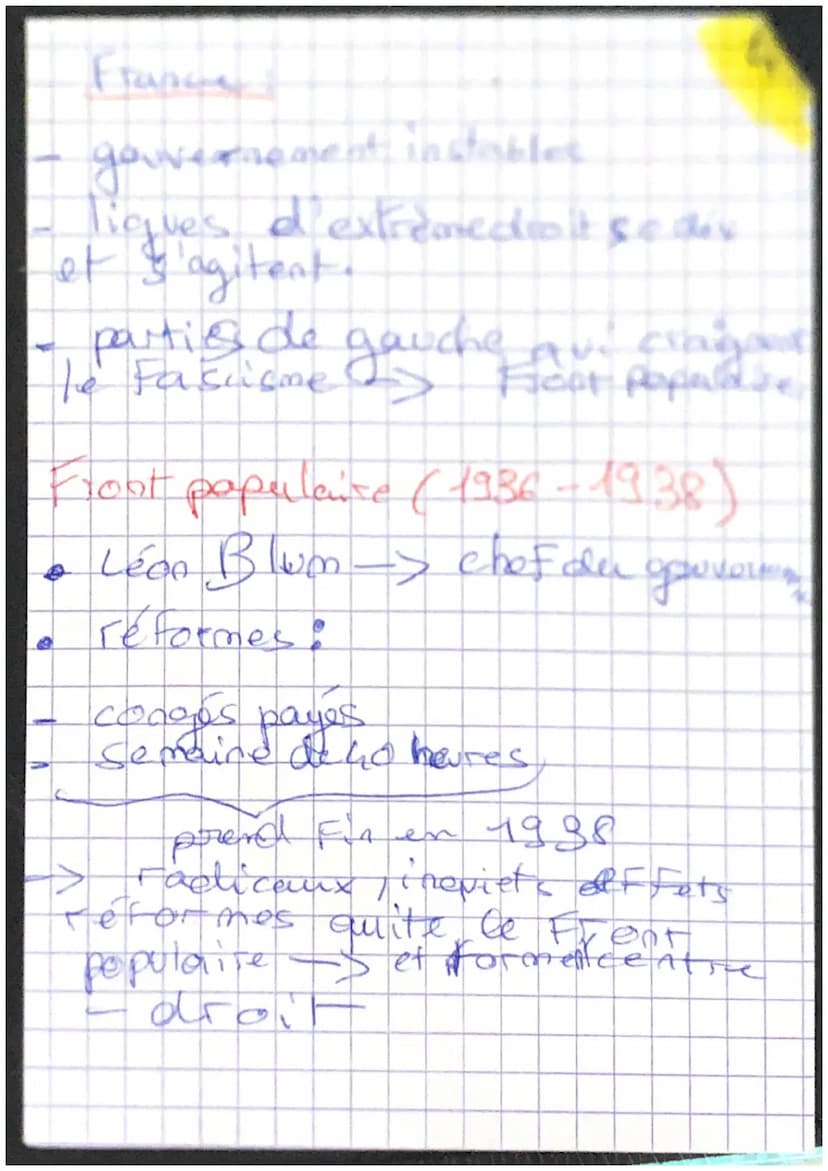 France :
- gouvernement instables
- ligues d'extrême droit se
et s'agitent.
- parties de gauche qui craigant
le Fascisme -> Front populaire
Front populaire (1936 - 1938)
• Léon Blum -> chef du gouvernem
• réformes :
- congés payés
- semaine de 40 heures
prend Fin en 1938
-> radicaux, inquiets effets
réformes quite le Front
populaire -> et forment centre
- droit